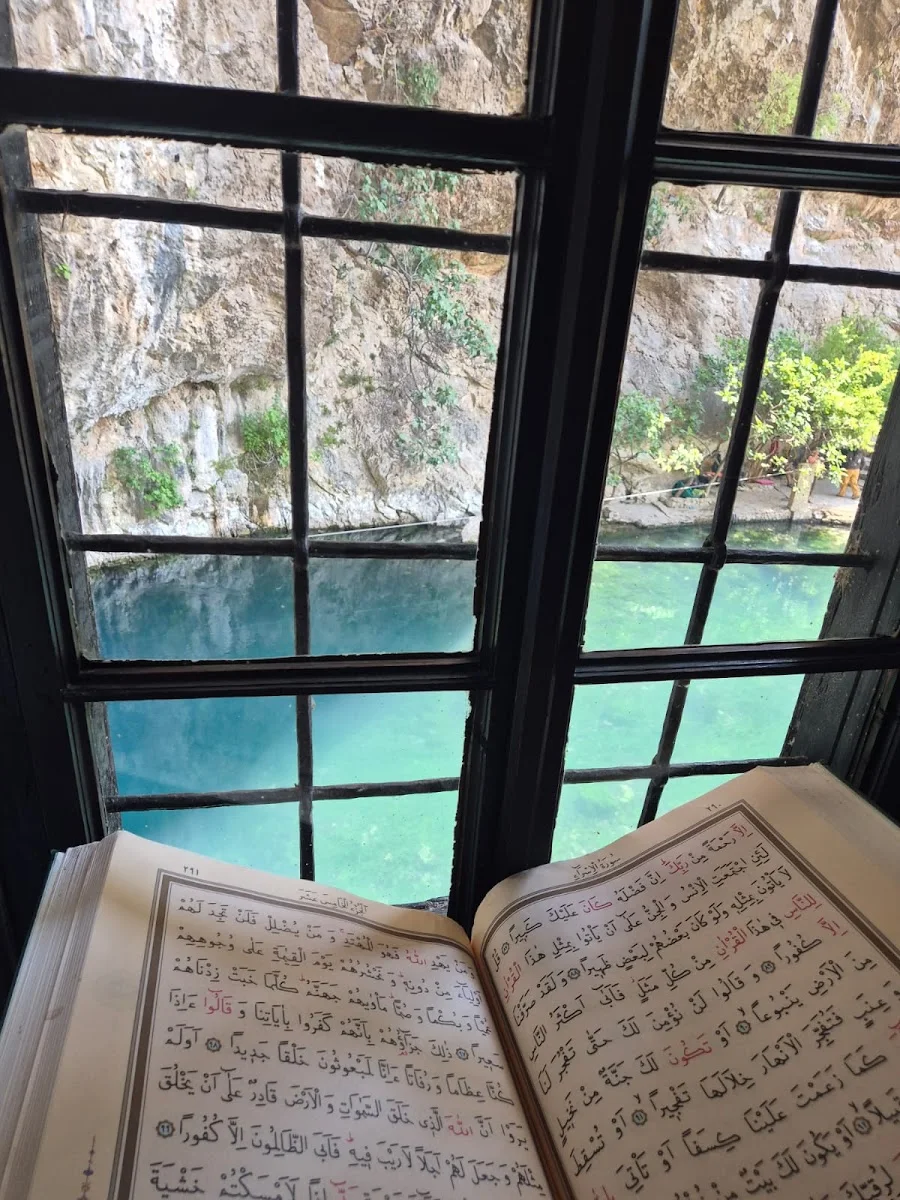 ٢٩٠
سُورَةُ الْاِسْرَاءِ
اِلَّا رَحْمَةً مِنْ رَبِّكَ اِنَّ فَضْلَهُ كَانَ عَلَيْكَ كَبِيرًا ﴿٨٧﴾ قُلْ
لَئِنِ اجْتَمَعَتِ الْاِنْسُ وَالْجِنُّ عَلٰى اَنْ يَأْتُوا بِمِثْلِ هٰذَا الْقُرْاٰنِ
لَا يَأْتُونَ بِمِثْلِهِ وَلَوْ كَانَ بَعْضُهُمْ لِبَعْضٍ ظَهِيرًا ﴿٨٨﴾ وَلَقَدْ صَرَّفْنَا
لِلنَّاسِ فِي هٰذَا الْقُرْاٰنِ مِنْ كُلِّ مَثَلٍ فَاَبٰى اَكْثَرُ النَّاسِ
اِلَّا كُفُورًا ﴿٨٩﴾ وَقَالُوا لَنْ نُؤْمِنَ لَكَ حَتّٰى تَفْجُرَ لَنَا
مِنَ الْاَرْضِ يَنْبُوعًا ﴿٩٠﴾ اَوْ تَكُونَ لَكَ جَنَّةٌ مِنْ نَخِيلٍ
وَعِنَبٍ فَتُفَجِّرَ الْاَنْهَارَ خِلَالَهَا تَفْجِيرًا ﴿٩١﴾ اَوْ تُسْقِطَ
كَمَا زَعَمْتَ عَلَيْنَا كِسَفًا اَوْ تَأْتِيَ
اَوْ يَكُونَ لَكَ بَيْتٌ
٢٩١
اَلْجُزْءُ الْخَامِسَ عَشَرَ
وَمَنْ يَهْدِ اللّٰهُ فَهُوَ الْمُهْتَدِ وَمَنْ يُضْلِلْ فَلَنْ تَجِدَ لَهُمْ
اَوْلِيَاءَ مِنْ دُونِهِ وَنَحْشُرُهُمْ يَوْمَ الْقِيٰمَةِ عَلٰى وُجُوهِهِمْ
عُمْيًا وَبُكْمًا وَصُمًّا مَأْوٰيهُمْ جَهَنَّمُ كُلَّمَا خَبَتْ زِدْنَاهُمْ
سَعِيرًا ﴿٩٧﴾ ذٰلِكَ جَزَاؤُهُمْ بِاَنَّهُمْ كَفَرُوا بِاٰيَاتِنَا وَقَالُوا ءَاِذَا
كُنَّا عِظَامًا وَرُفَاتًا ءَاِنَّا لَمَبْعُوثُونَ خَلْقًا جَدِيدًا ﴿٩٨﴾ اَوَلَمْ
يَرَوْا اَنَّ اللّٰهَ الَّذِي خَلَقَ السَّمٰوَاتِ وَالْاَرْضَ قَادِرٌ عَلٰى اَنْ يَخْلُقَ
مِثْلَهُمْ وَجَعَلَ لَهُمْ اَجَلًا لَا رَيْبَ فِيهِ فَاَبَى الظَّالِمُونَ اِلَّا كُفُورًا ﴿٩٩﴾
اِذًا لَاَمْسَكْتُمْ خَشْيَةَ